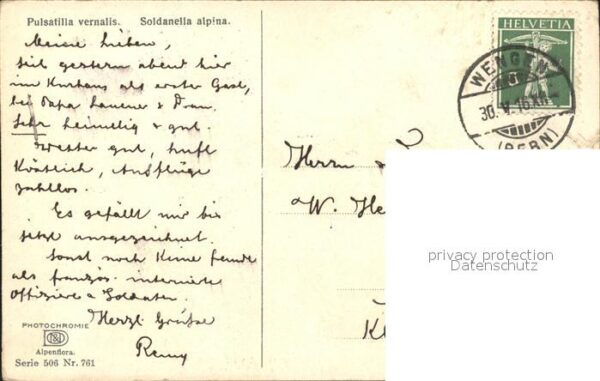 Pulsatilla vernalis. Soldanella alpina.
Meine Lieben,
seit gestern abend hier
im Kurhaus als erster Gast,
bei Papa Lauener & Frau.
Sehr heimelig & gut.
Wetter gut, Luft
Köstlich, Ausflüge
zahllos.
Es gefällt mir bis
jetzt ausgezeichnet.
Sonst noch keine fremde
als französ. internierte
Offiziere & Soldaten.
Herzl. Grüsse
Remy
PHOTOCHROMIE
Alpenflora.
Serie 506 Nr. 761
HELVETIA
WENGEN
30.V.16.XII
(BERN)
Herrn &
W. He
K
privacy protection
Datenschutz